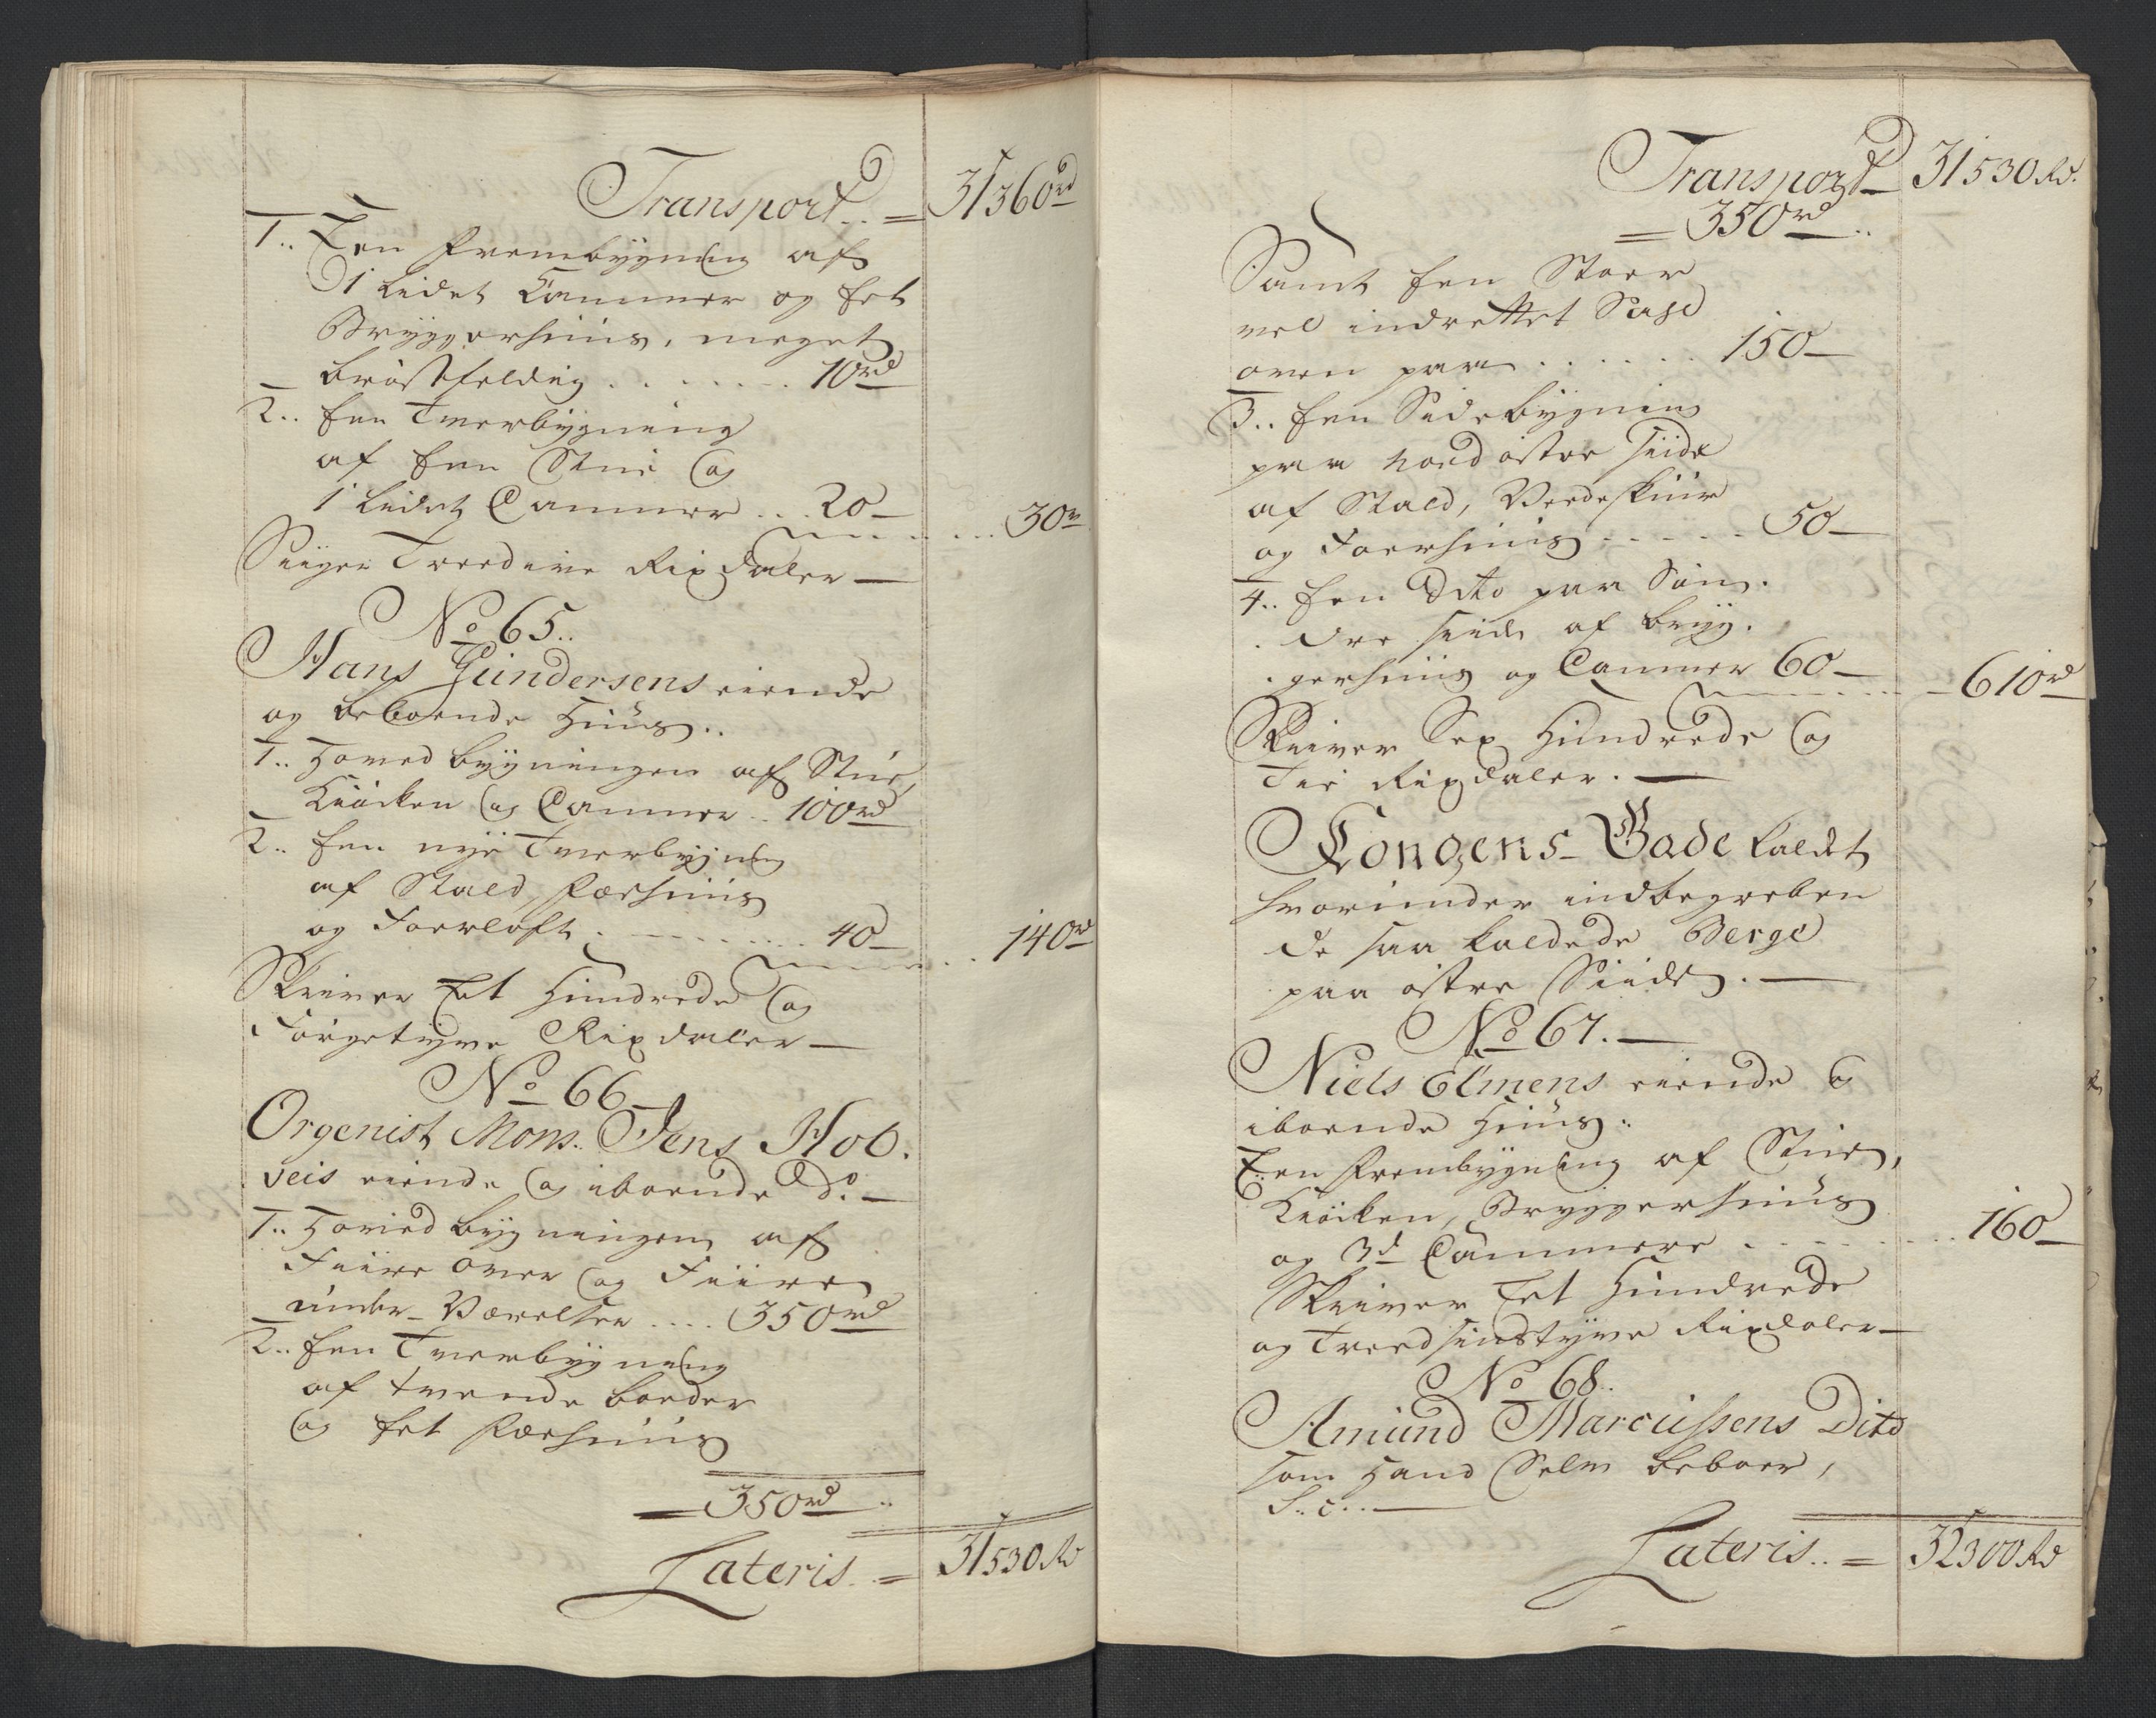 Transport.. = 31360rd
1.. Een Frembygning af
1 lidet Kammer og Eet
Bryggerhuus, meget
bröstfeldig ....... 10rd
2.. Een Tverbygning
af Een Stue og
1 lidet Cammer ... 20 — ... 30rd
Siiger Tredive Rixdaler —
No 65..
Hans Gundersens eiende
og beboende Huus..
1.. Hovedbygningen af Stue,
Kiöcken og Cammer .. 100rd
2.. Een nye Tverbygning
af Stald, Færhuus
og Foerloft ........ 40 — ... 140rd
Skriver Eet Hundrede og
Förgetyve Rixdaler —
No 66 —
Orgenist Mons. Jens Hob.
veis eiende og iboende do. —
1.. Hovedbygningen af
Fiire over og Fiire
under-Værelser .... 350rd
2.. Een Tverbygning
af tvende boeder
og Eet Færhuus
= 350rd ..
Lateris.. = 31530 Rd
Transport — 31530 Rd.
= 350rd ..
Samt Een Stoer
vel indrettet Sahl
oven paa ...... 150 —
3.. Een Sidebygning
paa nordöstre siide
af Stald, Vedeskuur
og Foerhuus ..... 50 —
4.. Een Dito paa Sön.
dre siide af bryg.
gerhuus og Cammer 60 — ... 610rd
Skriver Sex Hundrede og
Tie Rixdaler. —
Congens-Gade kaldet
hvorunder indbegreben
de saa kaldede Berge
paa östre Siide. —
No 67. —
Niels Elmens eiende og
iboende Huus..
Een Frembygning af Stue,
Kiöcken, Bryggerhuus
og 3d Cammere ........ 160 —
Skriver Eet Hundrede
og Tredsindstyve Rixdaler —
No 68..
Amund Marcussens Dito
som Hand Selv beboer,
S.. c.. —
Lateris.. = 32300 Rd